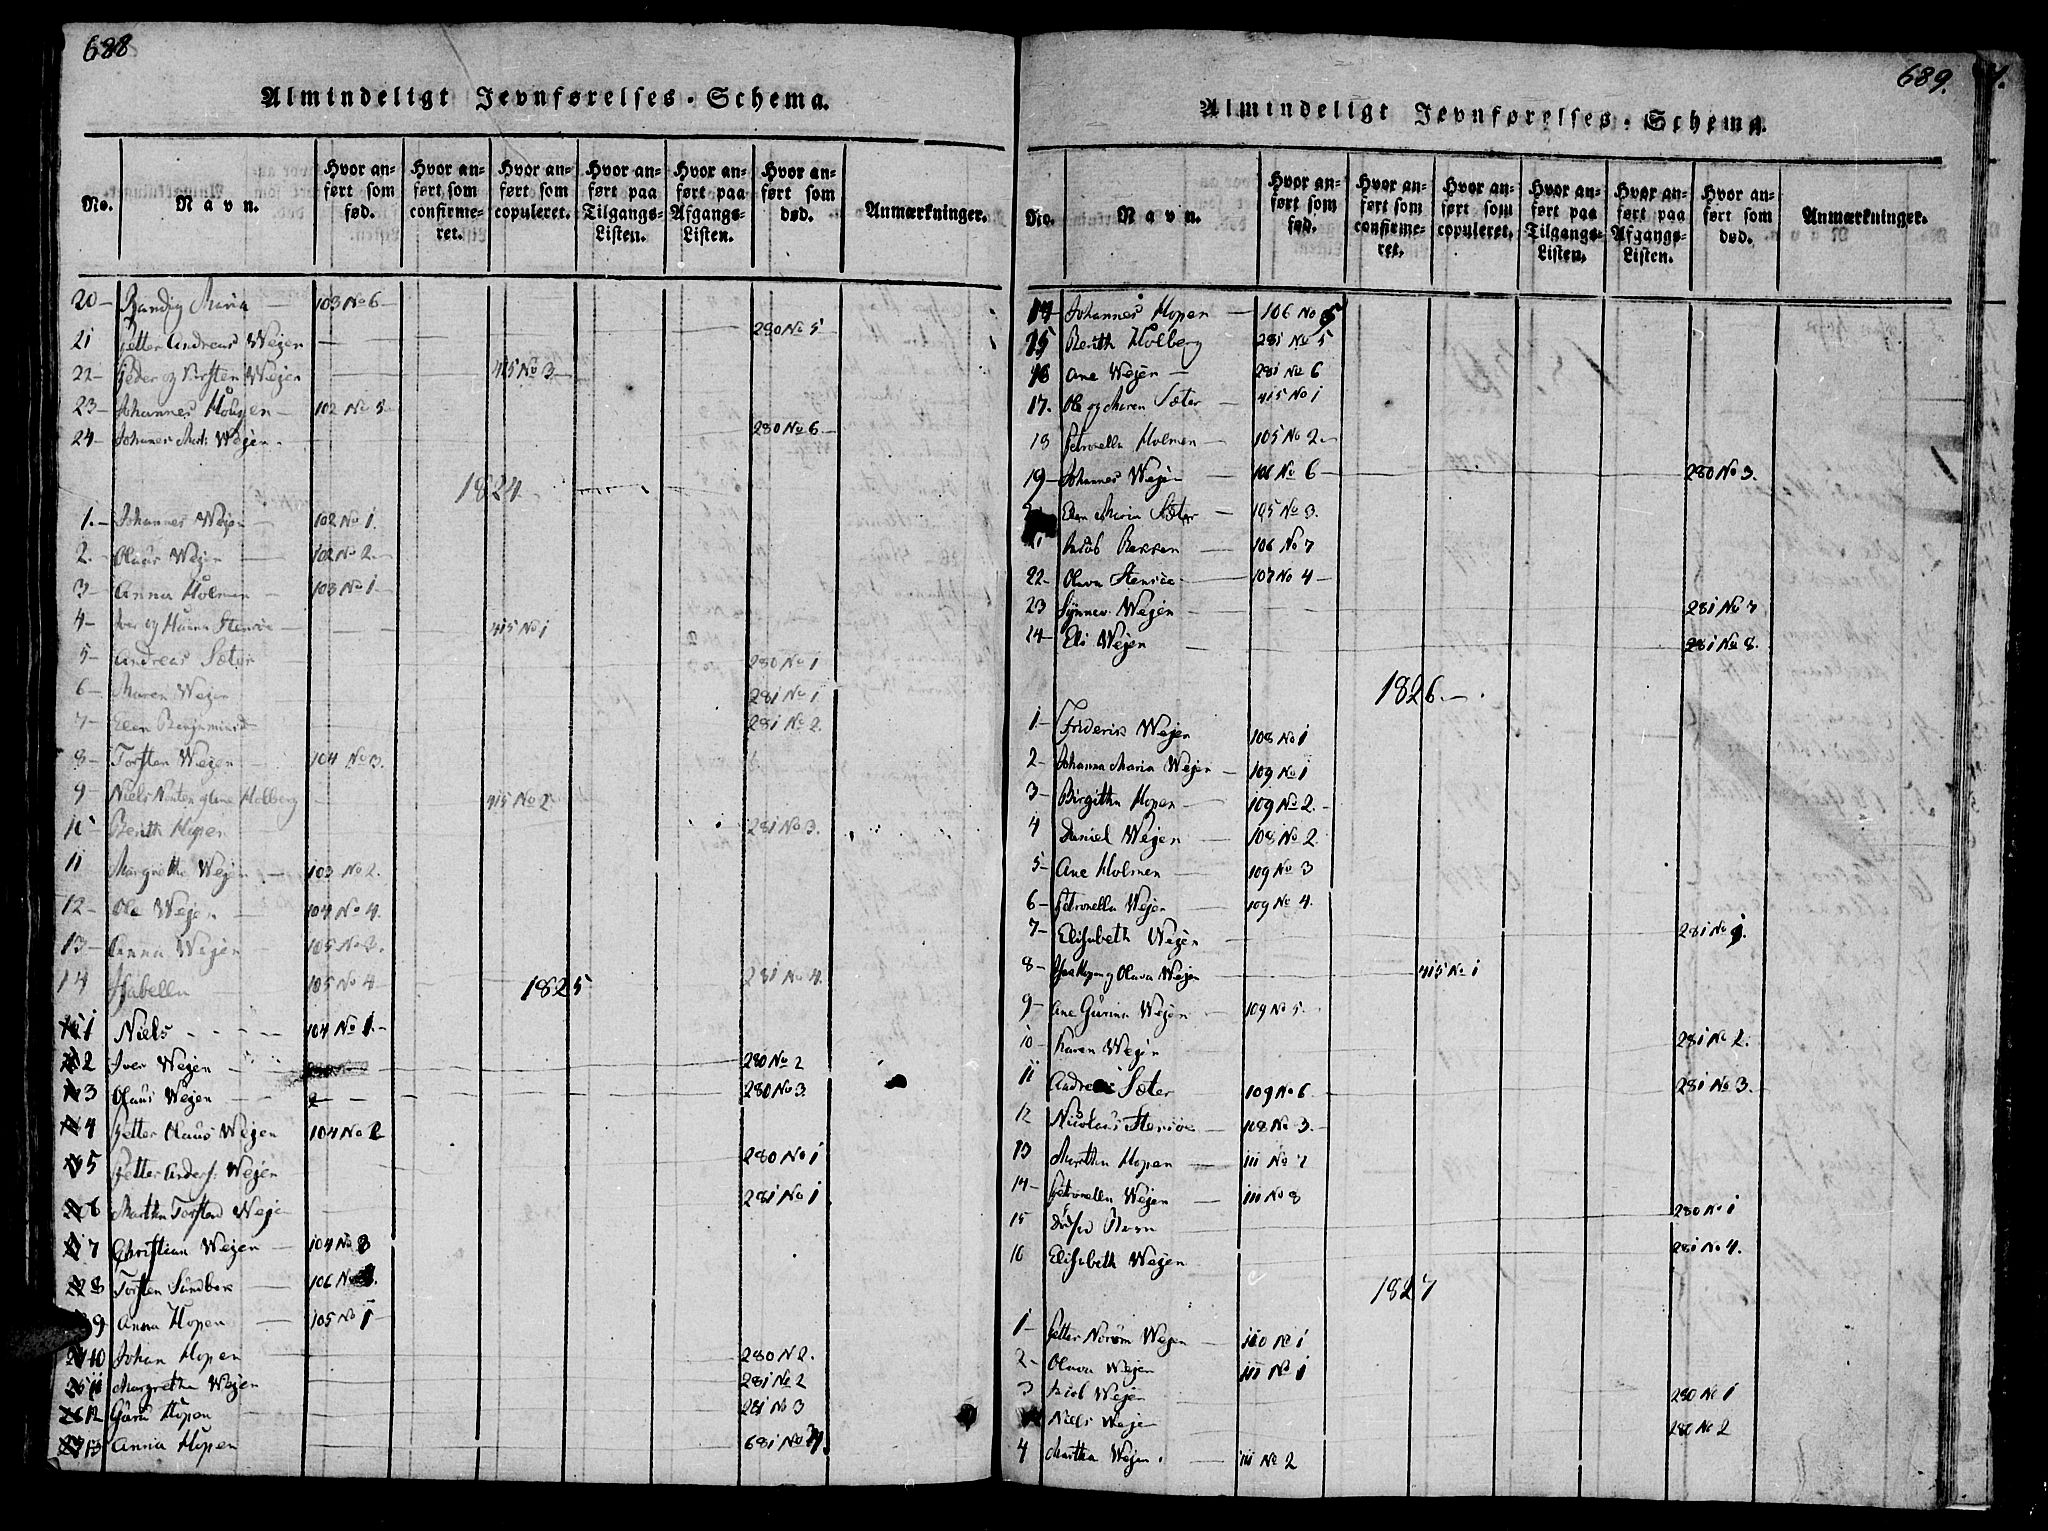 688
Almindeligt Jevnførelses-Schema.
No. Navn. Hvor anført som fød. Hvor anført som confirmeret. Hvor anført som copuleret. Hvor anført paa Tilgangs-Listen. Hvor anført paa Afgangs-Listen. Hvor anført som død. Anmærkninger.
20 - Maria - 103 No 6 -
21 Petter Andreas Wejen - 280 No 5 -
22 - Peder og Wejen - 415 No 3 -
23 - Johannes - 102 No 5
24 - Johannes Wejen - 280 No 6 -
1824
1. - Johannes Wejen - 102 No 1.
2. Olaus Wejen - 102 No 2 -
3 - Anna Holmen - 103 No 1 -
4 - Iver og Hanna Stensöe - 415 No 1
5 - Andreas Sæter 280 No 1
6 - Maren Wejen 281 No 1
7 - Elen 281 No 2.
8 - Torsten Wejen - 104 No 3.
9 - Niels Holberg - 415 No 2
10 - Berith Hopen 281 No 3.
11 Margrethe Wejen - 103 No 2.
12 - Ole Wejen - 104 No 4.
13 - Anna Wejen - 105 No 3.
14 Isabella - 105 No 4 281 No 4.
1825
1 Niels - - - - 104 No 1. -
2 Iver Wejen - 280 No 2
3 Olaus Wejen - - 280 No 3.
4 Petter Olaus Wejen 104 No 2
5 Petter Anders: Wejen 280 No 1
6 Marthe Wejen 281 No 1
7 Christian Wejen - 104 No 3
8 Torsten Sundbøe - 106 No
9 Anna Hopen - 105 No 1
10 Johan Hopen 280 N 2.
11 Margrethe Wejen 281 No 2
12 Guru Hopen 281 No 3
13 Anna Hopen 681 No 4.
689.
Almindeligt Jevnførelses-Schema.
No. Navn. Hvor anført som fød. Hvor anført som confirmeret. Hvor anført som copuleret. Hvor anført paa Tilgangs-Listen. Hvor anført paa Afgangs-Listen. Hvor anført som død. Anmærkninger.
14 - Johannes Hopen - 106 No 5
15 Berith Holberg 281 No 5
16 Ane Wejen - 281 No 6
17. Ole og Maren Sæter - 415 No 1
18 Petronella Holmen - 105 No 2 -
19 - Johannes Wejen - 106 No 6 - 280 No 3.
Elen Maria Sæter - 105 No 3.
- 106 No 7
22 - Olava Stensöe - 107 No 4 -
23 Synnev Wejen - 281 No 7
24 - Eli Wejen - 281 No 8.
1826. -
1 - Friderik Wejen 108 No 1
2 - Johanna Maria Wejen - 109 No 1
3 - Birgitha Hopen - 109 No 2. -
4 Daniel Wejen - 108 No 2
5 - Ane Holmen - 109 No 3
6 - Petronella Wejen - 109 No 4.
7 - Elisabeth Wejen - 281 No 1.
8 - og Olava Wejen 415 No 1
9 - Ane Gurina Wejen - 109 No 5.
10 - Karen Wejen 281 No 2.
11 Andreas Sæter 109 No 6 - 281 No 3.
12 Nicolaus Stensöe - 108 No 3. -
13 Martha Hopen - 111 No 7
14 - Petronella Wejen - 111 No 8
15 280 No 1
16 Elisabeth Wejen 281 No 4.
1827
1 - Petter Wejen - 110 No 1
2 - Olava Wejen 111 No 1
3 Wejen 280 No 1
Niels Wejen 280 No 2
4 Martha Wejen. 111 No 2